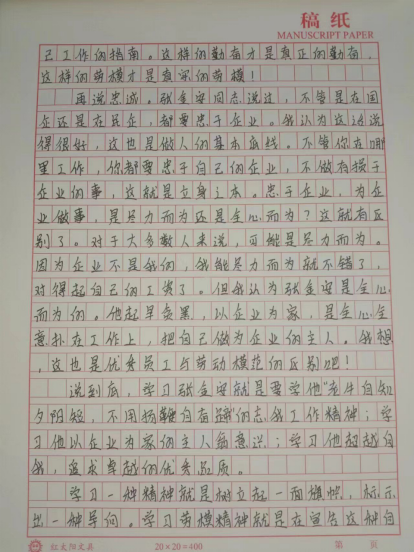 稿纸
MANUSCRIPT PAPER
己工作的指南。这样的勤奋才是真正的勤奋,
这样的劳模才是真实的劳模!
再说忠诚。张金安同志说过,不管是在国
企还是在民企,都要忠于企业。我认为这话说
得很好,这也是做人的基本底线。不管你在哪
里工作,你都要忠于自己的企业,不做有损于
企业的事,这就是立身之本。忠于企业,为企
业做事,是尽力而为还是全心而为?这就有区
别了。对于大多数人来说,可能是尽力而为。
因为企业不是我的,我能尽力而为就不错了,
对得起自己的工资了。但我认为张金安是全心
而为的。他起早贪黑,以企业为家,是全心全
意扑在工作上,把自己做为企业的主人。我想
,这也是优秀员工与劳动模范的区别吧!
说到底,学习张金安就是要学他“老牛自知
夕阳短,不用扬鞭自奋蹄”的忘我工作精神;学
习他以企业为家的主人翁意识;学习他超越自
我,追求卓越的优秀品质。
学习一种精神就是树立起一面旗帜,标示
出一种导向。学习劳模精神就是在宣告这种自
红太阳文具
20×20=400
第 页